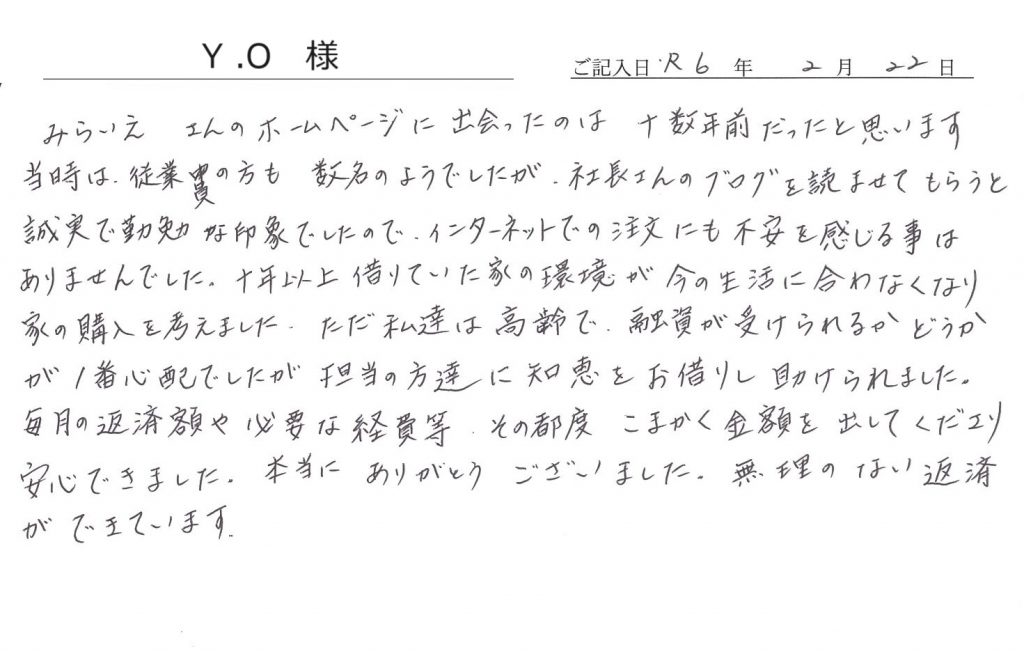 Y.O 様
ご記入日 R6 年 2 月 22 日
みらいえ さんのホームページに出会ったのは 十数年前だったと思います
当時は、従業員の方も 数名のようでしたが、社長さんのブログを読ませてもらうと
誠実で勤勉な印象でしたので、インターネットでの注文にも不安を感じる事は
ありませんでした。十年以上借りていた家の環境が今の生活に合わなくなり
家の購入を考えました。ただ私達は高齢で、融資が受けられるかどうか
が1番心配でしたが担当の方達に知恵をお借りし助けられました。
毎月の返済額や必要な経費等、その都度 こまかく金額を出してくださり
安心できました。本当に ありがとう ございました。無理のない返済
ができています。